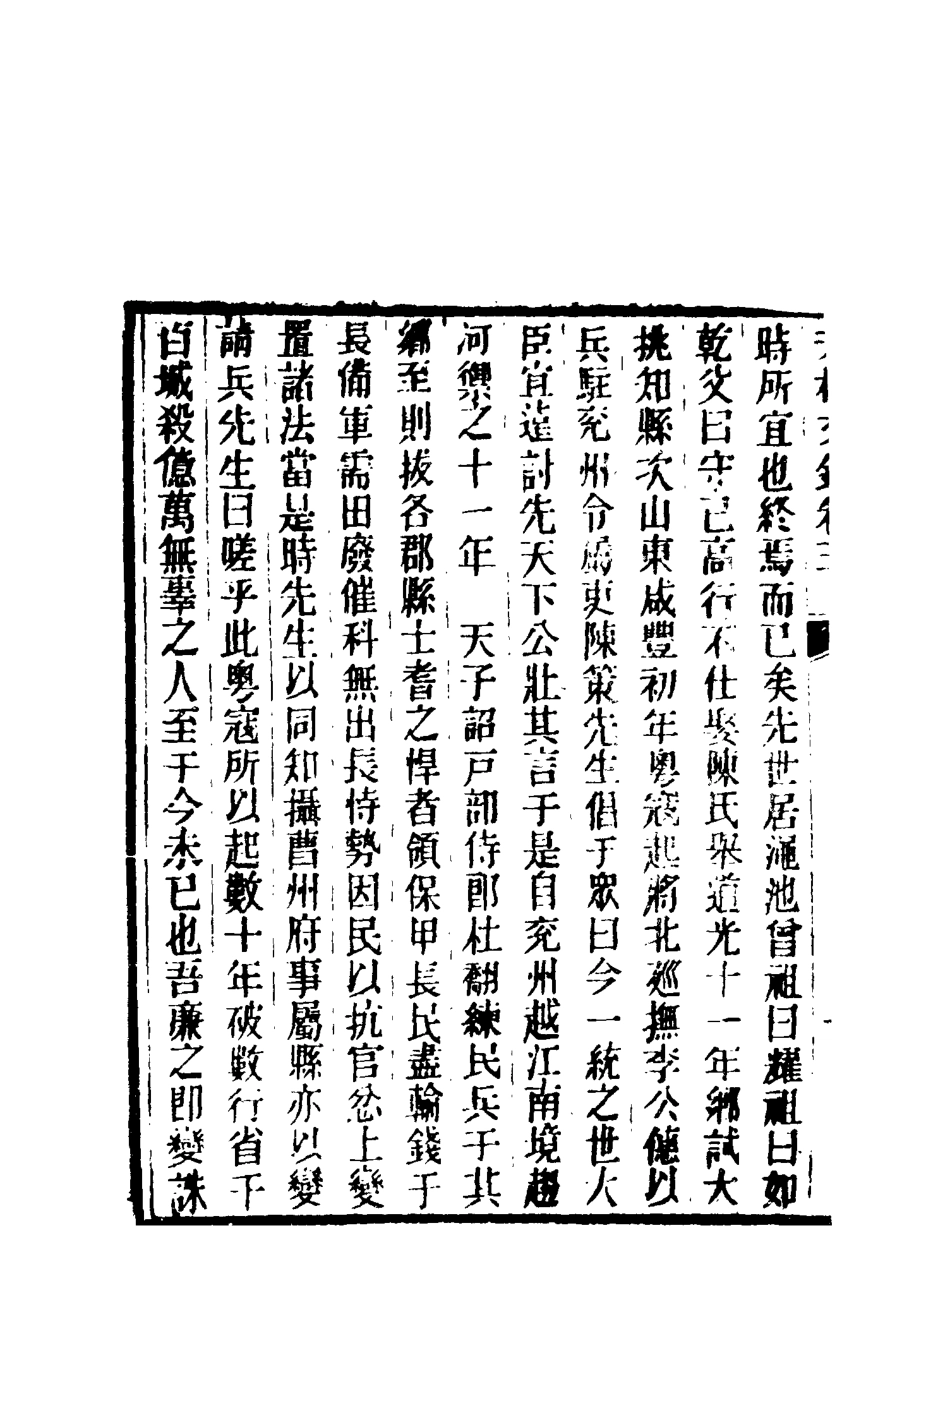 時所宜也終焉而已矣先世居澠池曾祖曰耀祖曰如
乾父曰守已高行不仕娶陳氏舉道光十一年鄉試大
挑知縣次山東咸豐初年粵寇起將北巡撫李公僡以
兵駐兖州令屬吏陳策先生倡于眾曰今一統之世大
臣宜遠討先天下公壯其言于是自兖州越江南境趨
河禦之十一年　天子詔戸部侍郎杜翮練民兵于其
鄉至則拔各郡縣士耆之悍者領保甲長民盡輸錢于
長備軍需田廢催科無出長恃勢因民以抗官忿上變
置諸法當是時先生以同知攝曹州府事屬縣亦以變
請兵先生曰嗟乎此粵寇所以起數十年破數行省千
百城殺億萬無辜之人至于今未已也吾廉之即變誅